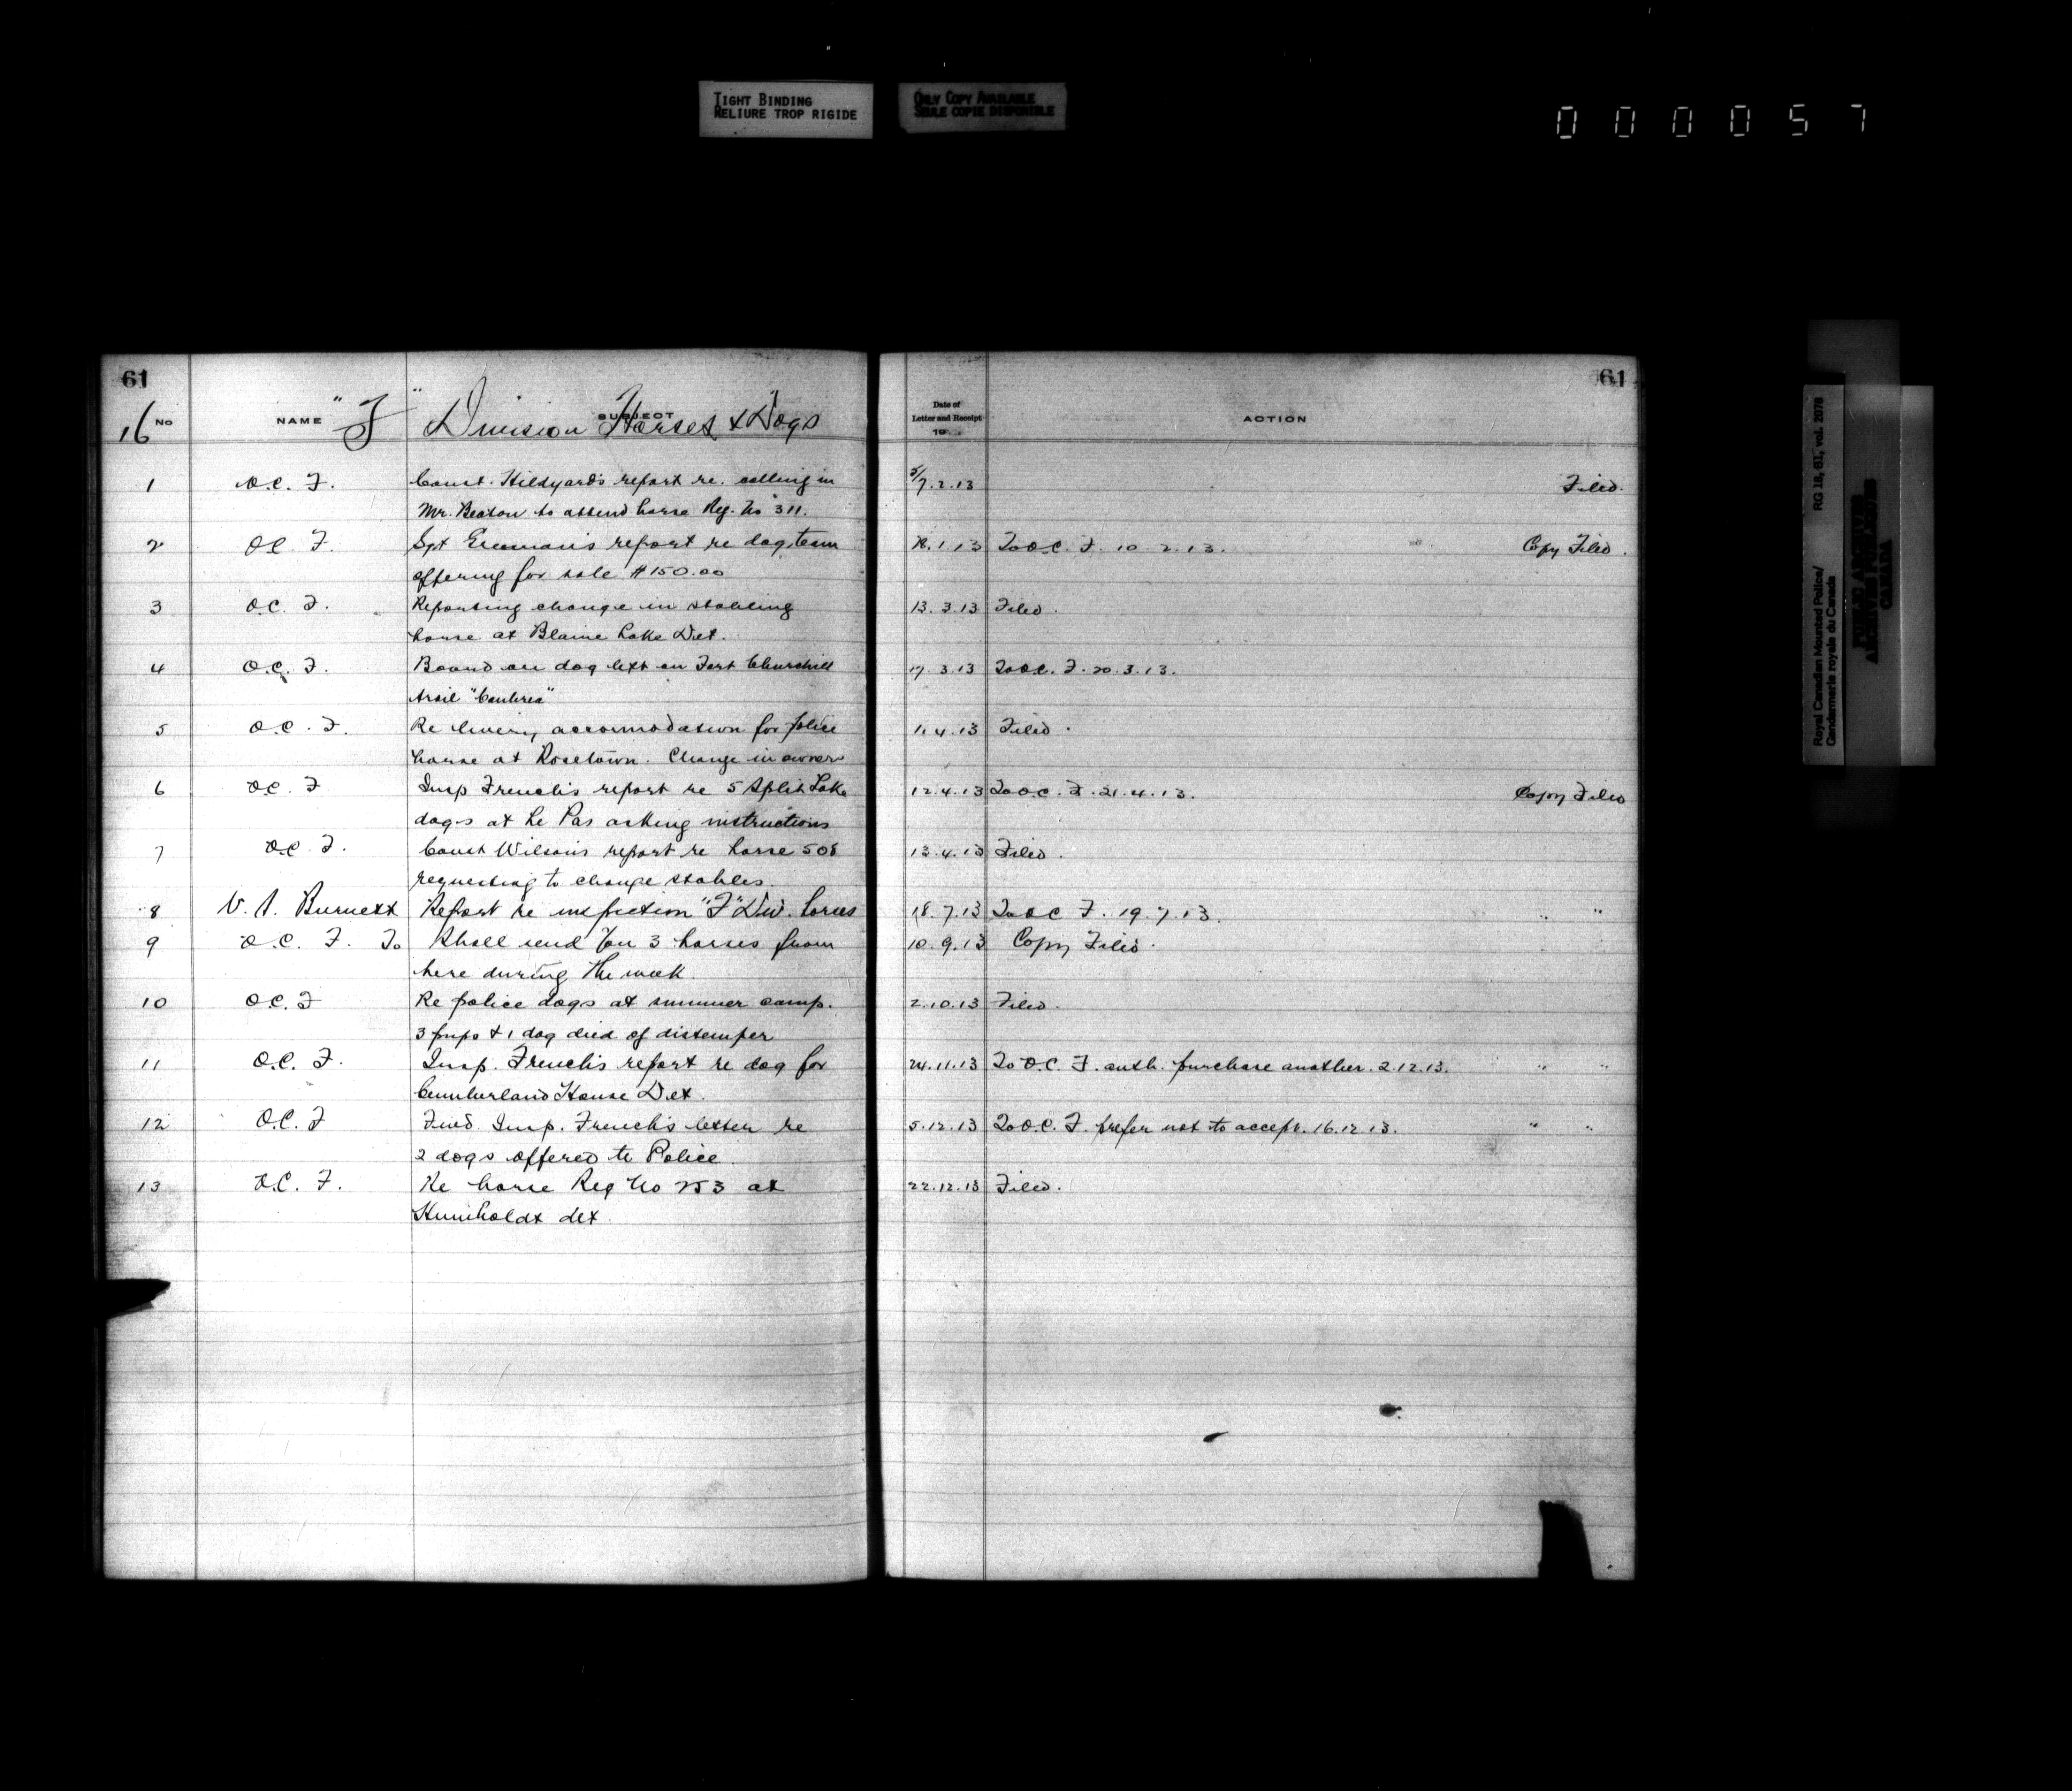 TIGHT BINDING
RELIURE TROP RIGIDE
ONLY COPY AVAILABLE
SEULE COPIE DISPONIBLE
000057
61
16 No NAME "F" SUBJECT Division Horses & Dogs
1 O.C. F. Const. Hildyard's report re. calling in
Mr. Beaton to attend horse Reg. No 311.
2 O.C. F. Sgt report re dog team
offering for sale $150.00
3 O.C. F. Reporting change in stabling
horse at Blaine Lake Det.
4 O.C. F. Board on dog left on Fort Churchill
trail
5 O.C. F. Re livery accomodation for police
horse at Rosetown. Change in owner
6 O.C. F Insp French's report re 5 Split Lake
dogs at Le Pas asking instructions
7 O.C. F. Const Wilson's report re horse 508
requesting to change stables.
8 V. S. Burnett Report re inspection "F" Div. horses
9 O.C. F. To Shall send you 3 horses from
here during the week.
10 O.C. F Re police dogs at summer camp.
3 pups & 1 dog died of distemper
11 O.C. F. Insp. French's report re dog for
Cumberland House Det.
12 O.C. F Fwd. Insp. French's letter re
2 dogs offered to Police.
13 O.C. F. Re horse Reg No 253 at
Humboldt det.
61
Date of
Letter and Receipt
19
ACTION
5/7.2.13 Filed.
.1.13 To O.C. F. 10.2.13. Copy Filed.
13.3.13 Filed.
17.3.13 To O.C. F. 20.3.13.
11.4.13 Filed.
12.4.13 To O.C. F. 21.4.13. Copy Filed
13.4.13 Filed.
18.7.13 To O.C F. 19.7.13. " "
10.9.13 Copy Filed.
2.10.13 Filed.
24.11.13 To O.C. F. auth. purchase another. 2.12.13. " "
5.12.13 To O.C. F. prefer not to accept. 16.12.13. " "
22.12.13 Filed.
Royal Canadian Mounted Police/ RG 18, B1, vol. 2078
Gendarmerie royale du Canada
PUBLIC ARCHIVES
ARCHIVES PUBLIQUES
CANADA